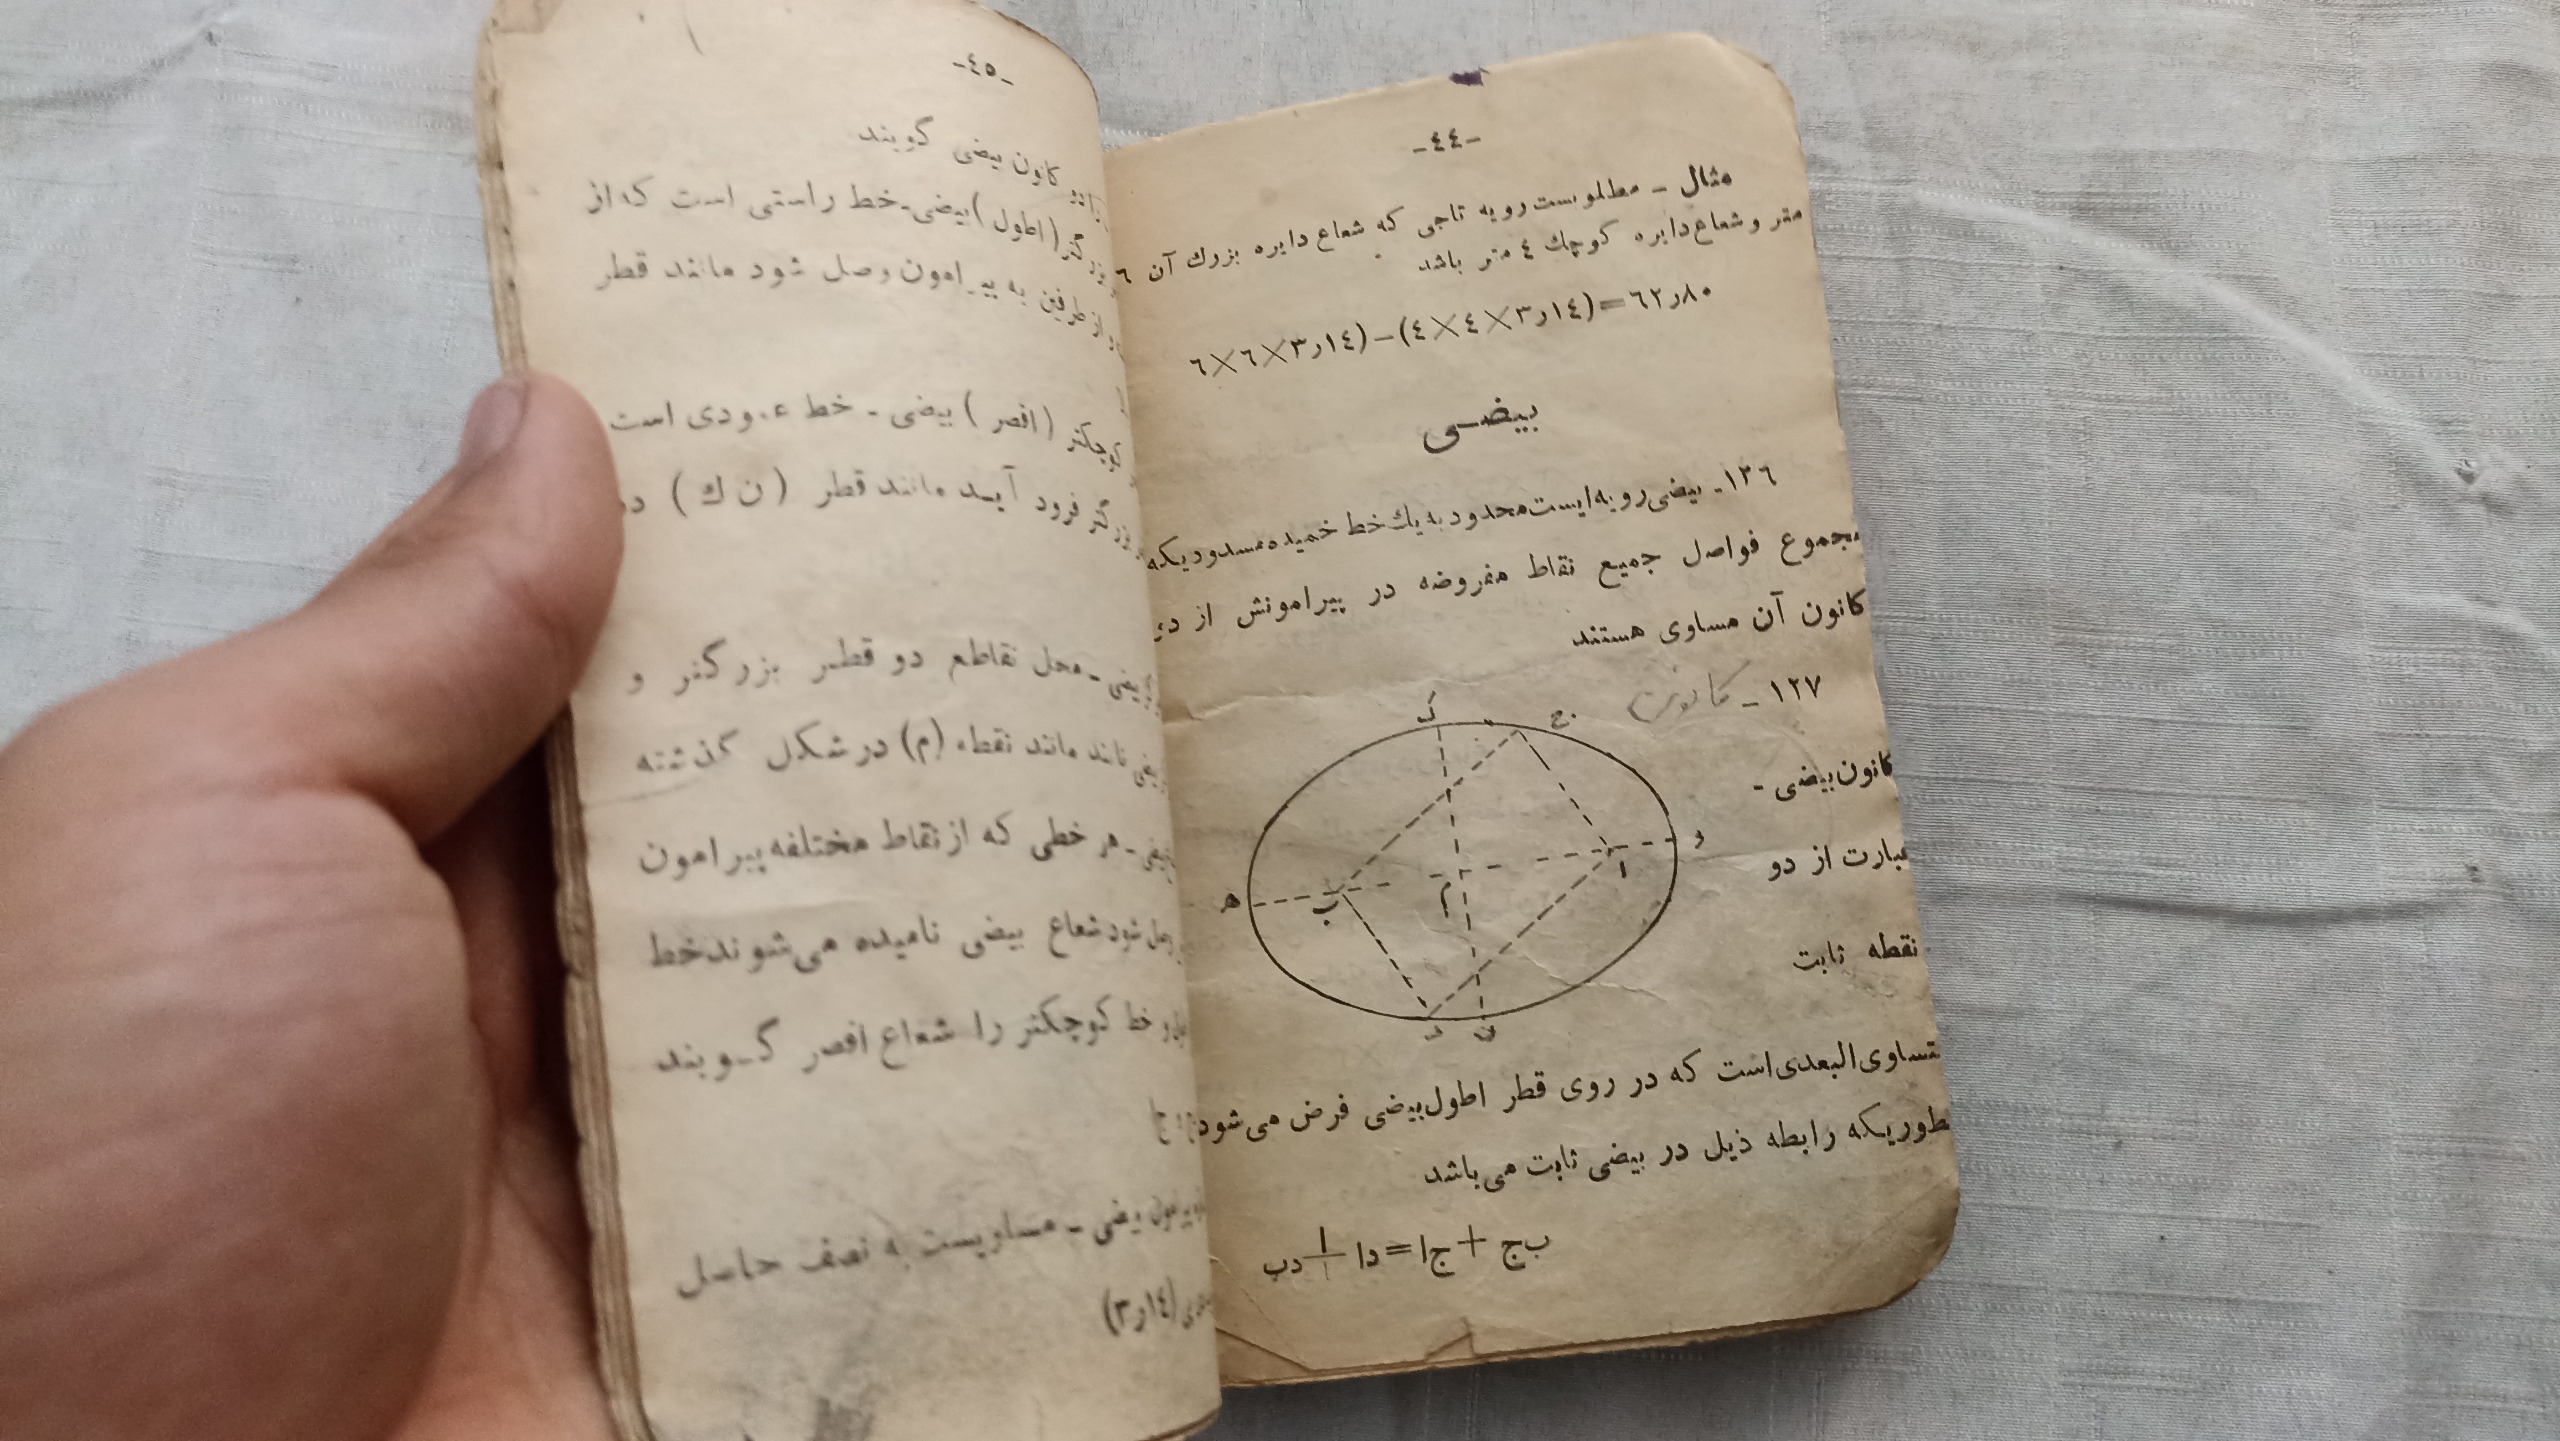 -٤٤-
مثال - مطلوبست رویه تاجی که شعاع دایره بزرك آن ٦
متر و شعاع دایره کوچك ٤ متر باشد
٦×٦×٣ر١٤)-(٤×٤×٣ر١٤)=٦٢ر٨٠
بیضی
١٢٦- بیضی رویه‌ایست محدود به یك خط خمیده مسدودیکه
مجموع فواصل جمیع نقاط مفروضه در پیرامونش از دو
کانون آن مساوی هستند
١٢٧- کانون
ك ج
کانون بیضی -
و
عبارت از دو
ه ب م ا
نقطه ثابت
د ن
متساوی‌البعدی است که در روی قطر اطول بیضی فرض می‌شود
بطوریکه رابطه ذیل در بیضی ثابت می‌باشد
ب‌ج + ج‌ا = دا + دب
-٤٥-
را دو کانون بیضی گویند
بزرگتر (اطول) بیضی - خط راستی است که از
از طرفین به پیرامون وصل شود مانند قطر
کوچکتر (اقصر) بیضی - خط عمودی است
بزرگتر فرود آید مانند قطر (ن ك) در
بیضی - محل تقاطع دو قطر بزرگتر و
مانند نقطه (م) در شکل گذشته
بیضی - هر خطی که از نقاط مختلفه پیرامون
وصل شود شعاع بیضی نامیده می‌شوند خط
و خط کوچکتر را شعاع اقصر گویند
پیرامون بیضی - مساویست به نصف حاصل
(٣ر١٤)